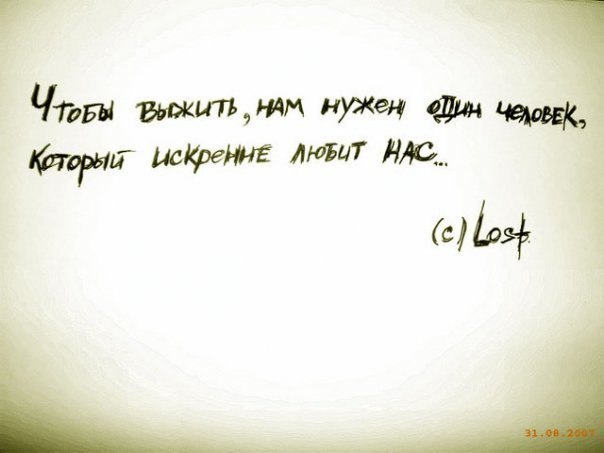 Чтобы выжить, нам нужен один человек,
который искренне любит нас...
(c) Lost.
31.08.2007